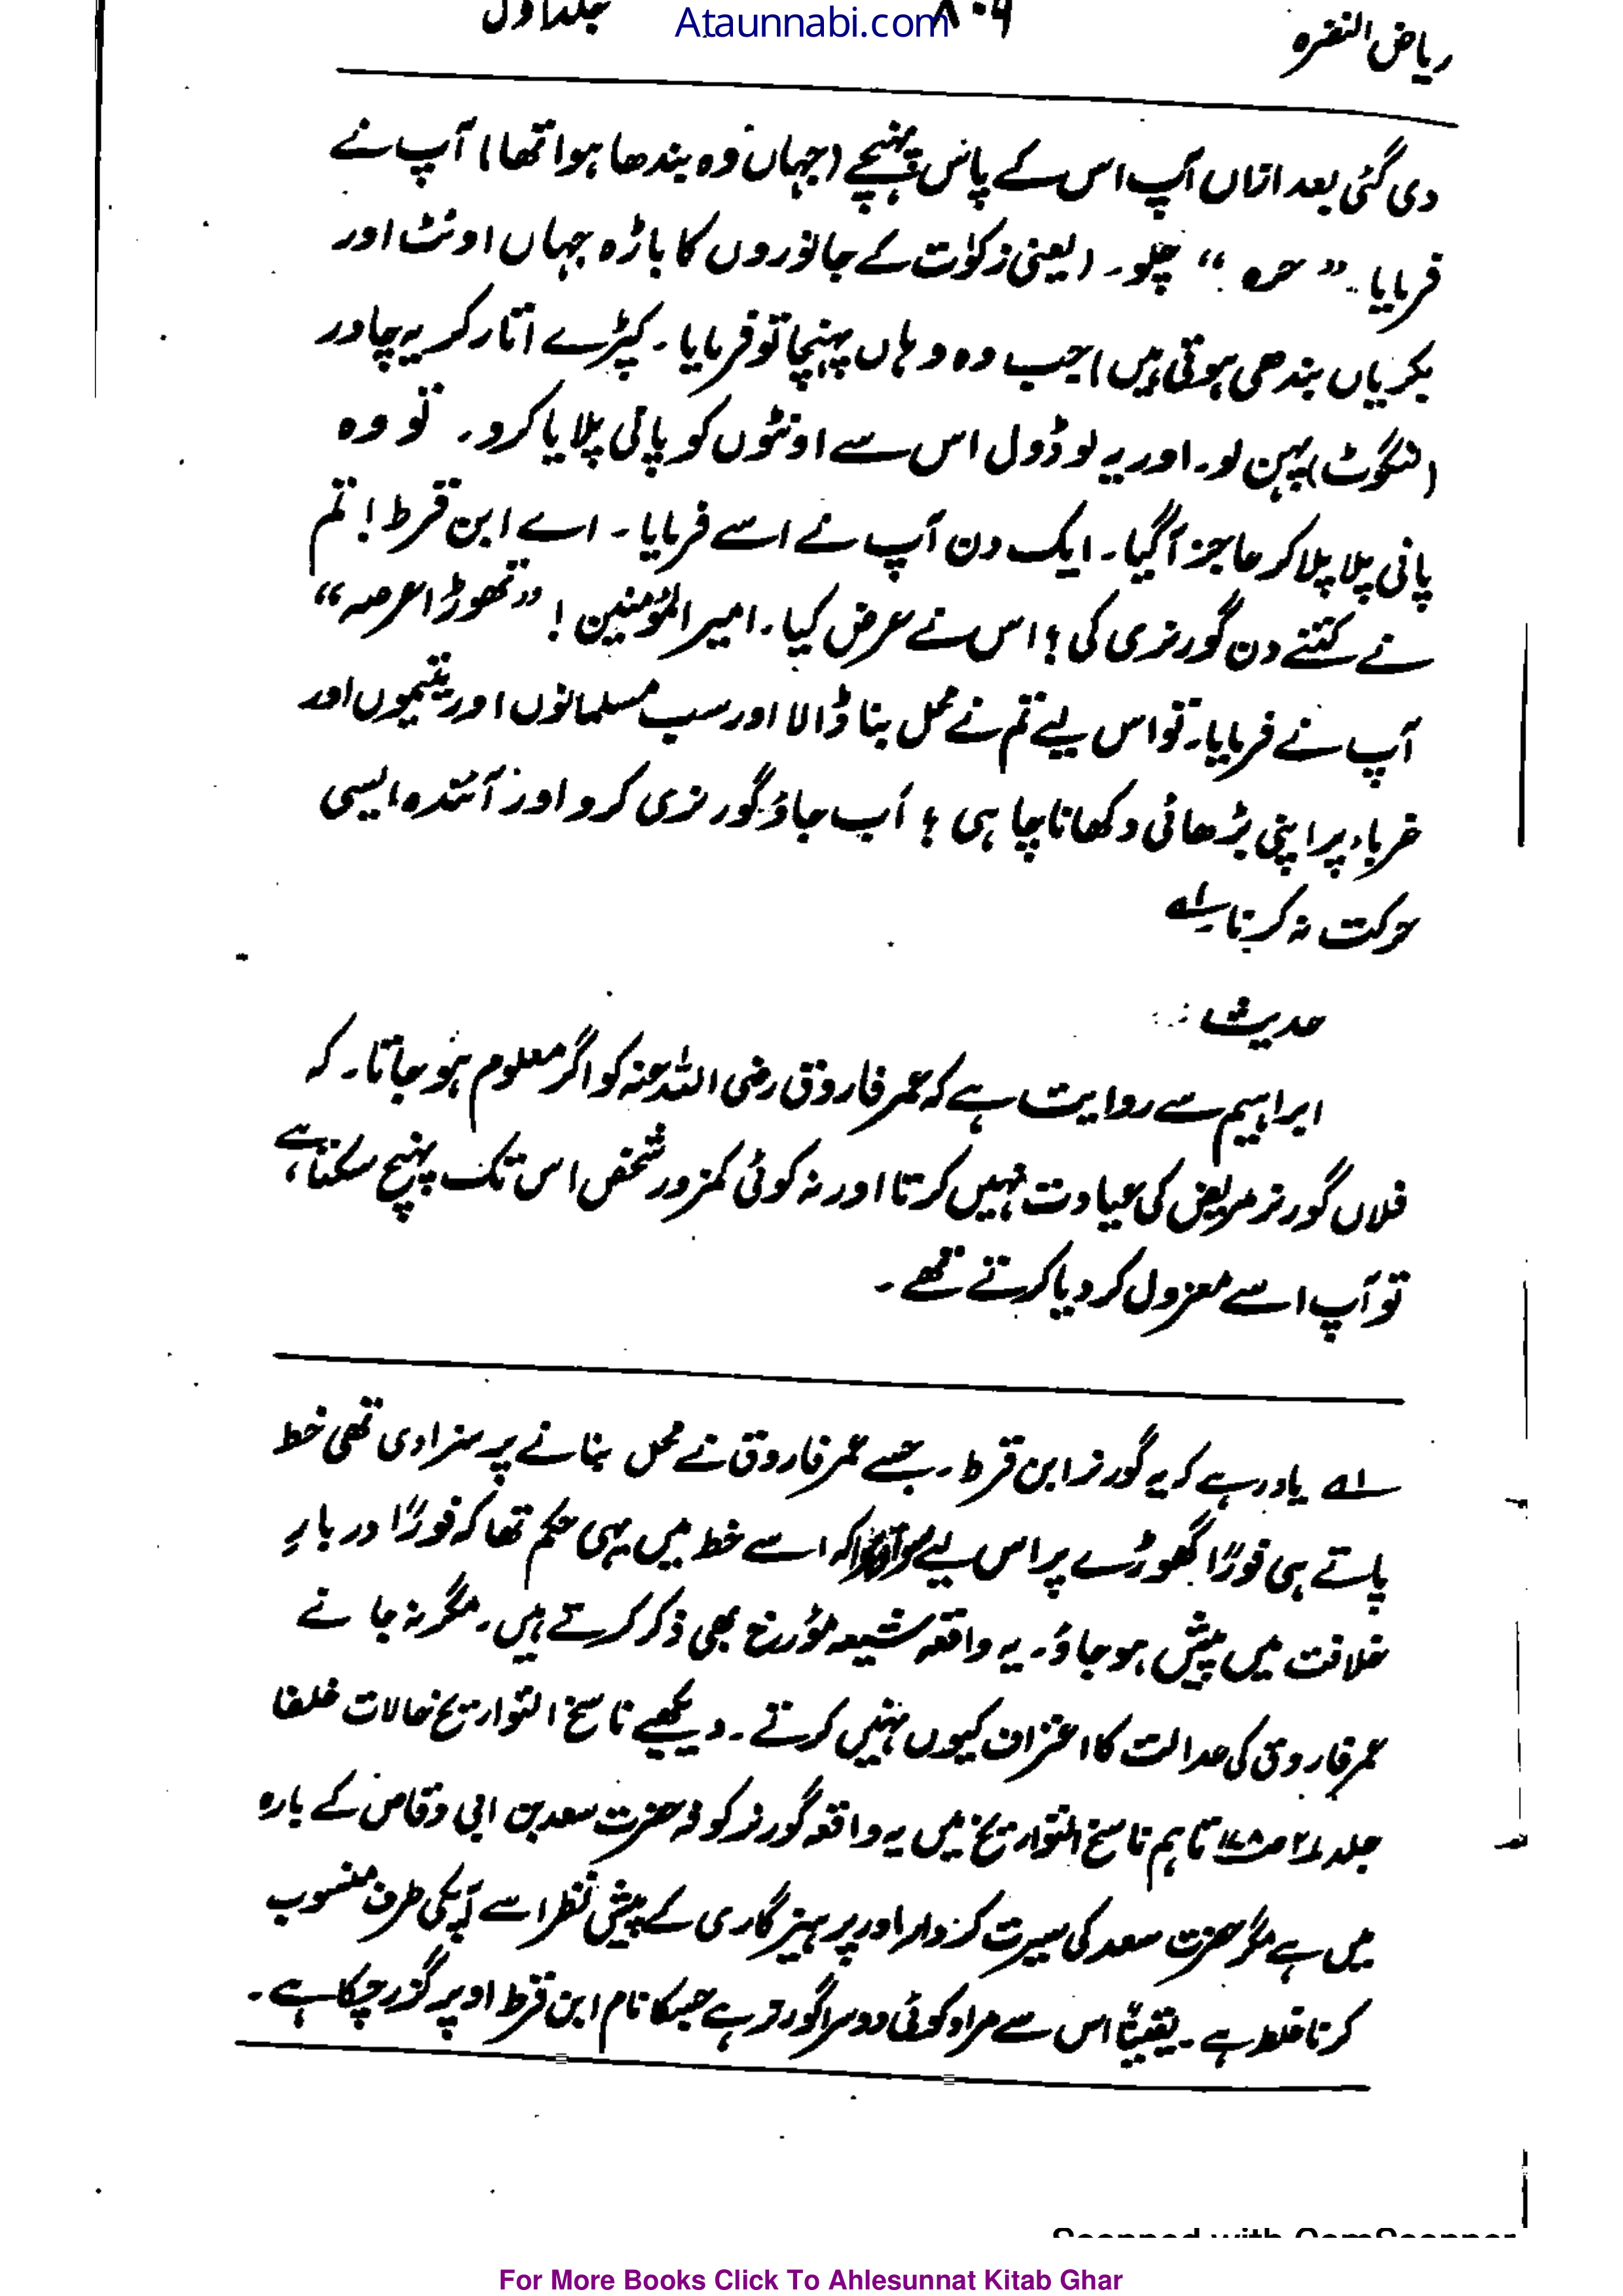 ریاض النضرہ ۸۰۶ جلد اول
Ataunnabi.com
دی گئی بعد ازاں آپ اس کے پاس پہنچے (جہاں وہ بندھا ہوا تھا) آپ نے
فرمایا۔ ”حرہ“ چلو۔ (یعنی زکوٰت کے جانوروں کا باڑہ جہاں اونٹ اور
بکریاں بندھی ہوتی ہیں) جب وہ وہاں پہنچا تو فرمایا۔ کپڑے اتار کر یہ چادر
(لنگوٹ) پہن لو۔ اور یہ لو ڈول اس سے اونٹوں کو پانی پلایا کرو۔ تو وہ
پانی پلا پلا کر عاجز آگیا۔ ایک دن آپ نے اسے فرمایا۔ اے ابن قرط! تم
نے کتنے دن گورنری کی؟ اس نے عرض کیا۔ امیر المؤمنین! ”تھوڑا عرصہ“
آپ نے فرمایا۔ تو اس لیے تم نے محل بنا ڈالا اور سب مسلمانوں اور یتیموں اور
غرباء پر اپنی بڑھائی دکھانا چاہی؟ اب جاؤ گورنری کرو اور آئندہ ایسی
حرکت نہ کرنا۔ لہ
حدیث :
ابراہیم سے روایت ہے کہ عمر فاروق رضی اللہ عنہ کو اگر معلوم ہو جاتا۔ کہ
فلاں گورنر مریض کی عیادت نہیں کرتا اور نہ کوئی کمزور شخص اس تک پہنچ سکتا ہے،
تو آپ اسے معزول کر دیا کرتے تھے۔
لہ یاد رہے کہ یہ گورنر ابن قرط۔ جسے عمر فاروق نے محل بنانے پر سزا دی تھی خط
پاتے ہی فوراً گھوڑے پر اس لیے سوار ہوا کہ اسے خط میں یہی حکم تھا کہ فوراً دربارِ
خلافت میں پیش ہو جاؤ۔ یہ واقعہ شیعہ مؤرخ بھی ذکر کرتے ہیں۔ مگر نہ جانے
عمر فاروق کی عدالت کا اعتراف کیوں نہیں کرتے۔ دیکھیے ناسخ التواریخ حالات خلفا
جلد ۲ تاہم ناسخ التواریخ میں یہ واقعہ گورنر کوفہ حضرت سعد بن ابی وقاص کے بارہ
میں ہے مگر حضرت سعد کی سیرت کردار اور پرہیز گاری کے پیش نظر اسے آپکی طرف منسوب
کرنا غلط ہے۔ یقیناً اس سے مراد کوئی دوسرا گورنر ہے جسکا نام ابن قرط اوپر گزر چکا ہے۔
Scanned with CamScanner
For More Books Click To Ahlesunnat Kitab Ghar